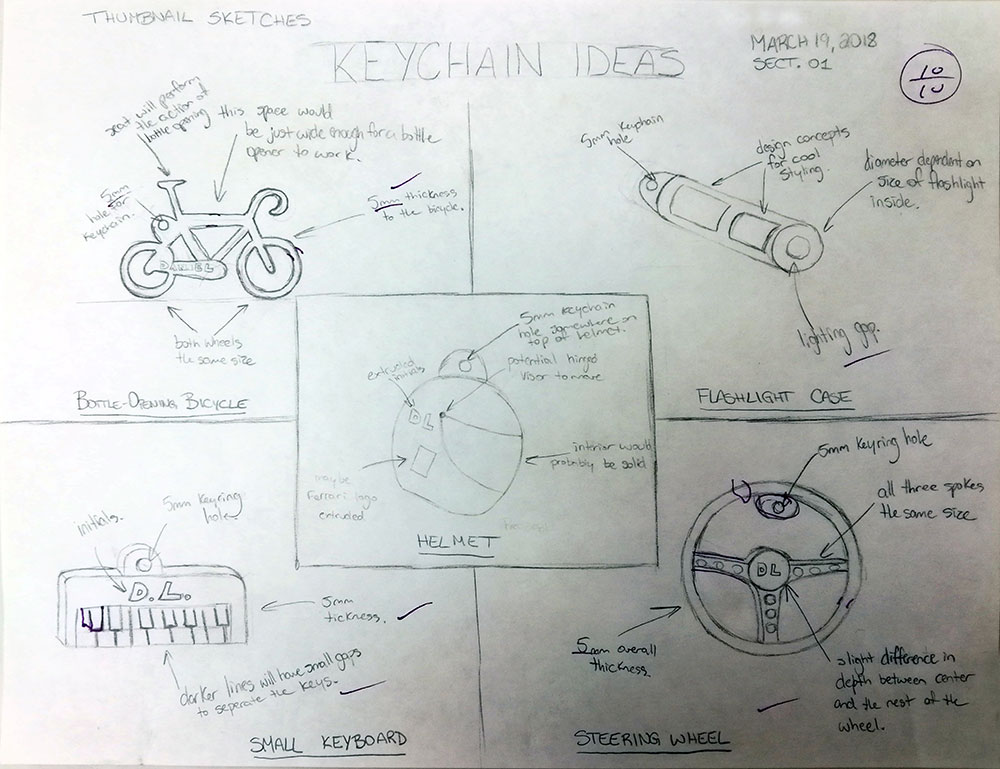 THUMBNAIL SKETCHES
KEYCHAIN IDEAS
MARCH 19, 2018
SECT. 01
10
10
seat will perform
the action of
bottle opening
this space would
be just wide enough for a bottle
opener to work.
5mm
hole for
keychain.
5mm thickness
to the bicycle.
DANIEL
both wheels
the same size
BOTTLE-OPENING BICYCLE
5mm keychain
hole
design concepts
for cool
styling.
diameter dependent on
size of flashlight
inside.
lighting gap.
FLASHLIGHT CASE
5mm keychain
hole somewhere on
top of helmet.
extruded
initials
potential hinged
visor to move
DL
interior would
probably be solid
maybe
Ferrari logo
extruded
HELMET
initials.
5mm keyring
hole
D.L.
5mm
tickness.
darker lines will have small gaps
to seperate the keys.
SMALL KEYBOARD
5mm keyring hole
all three spokes
the same size
DL
5mm overall
thickness.
slight difference in
depth between center
and the rest of the
wheel.
STEERING WHEEL